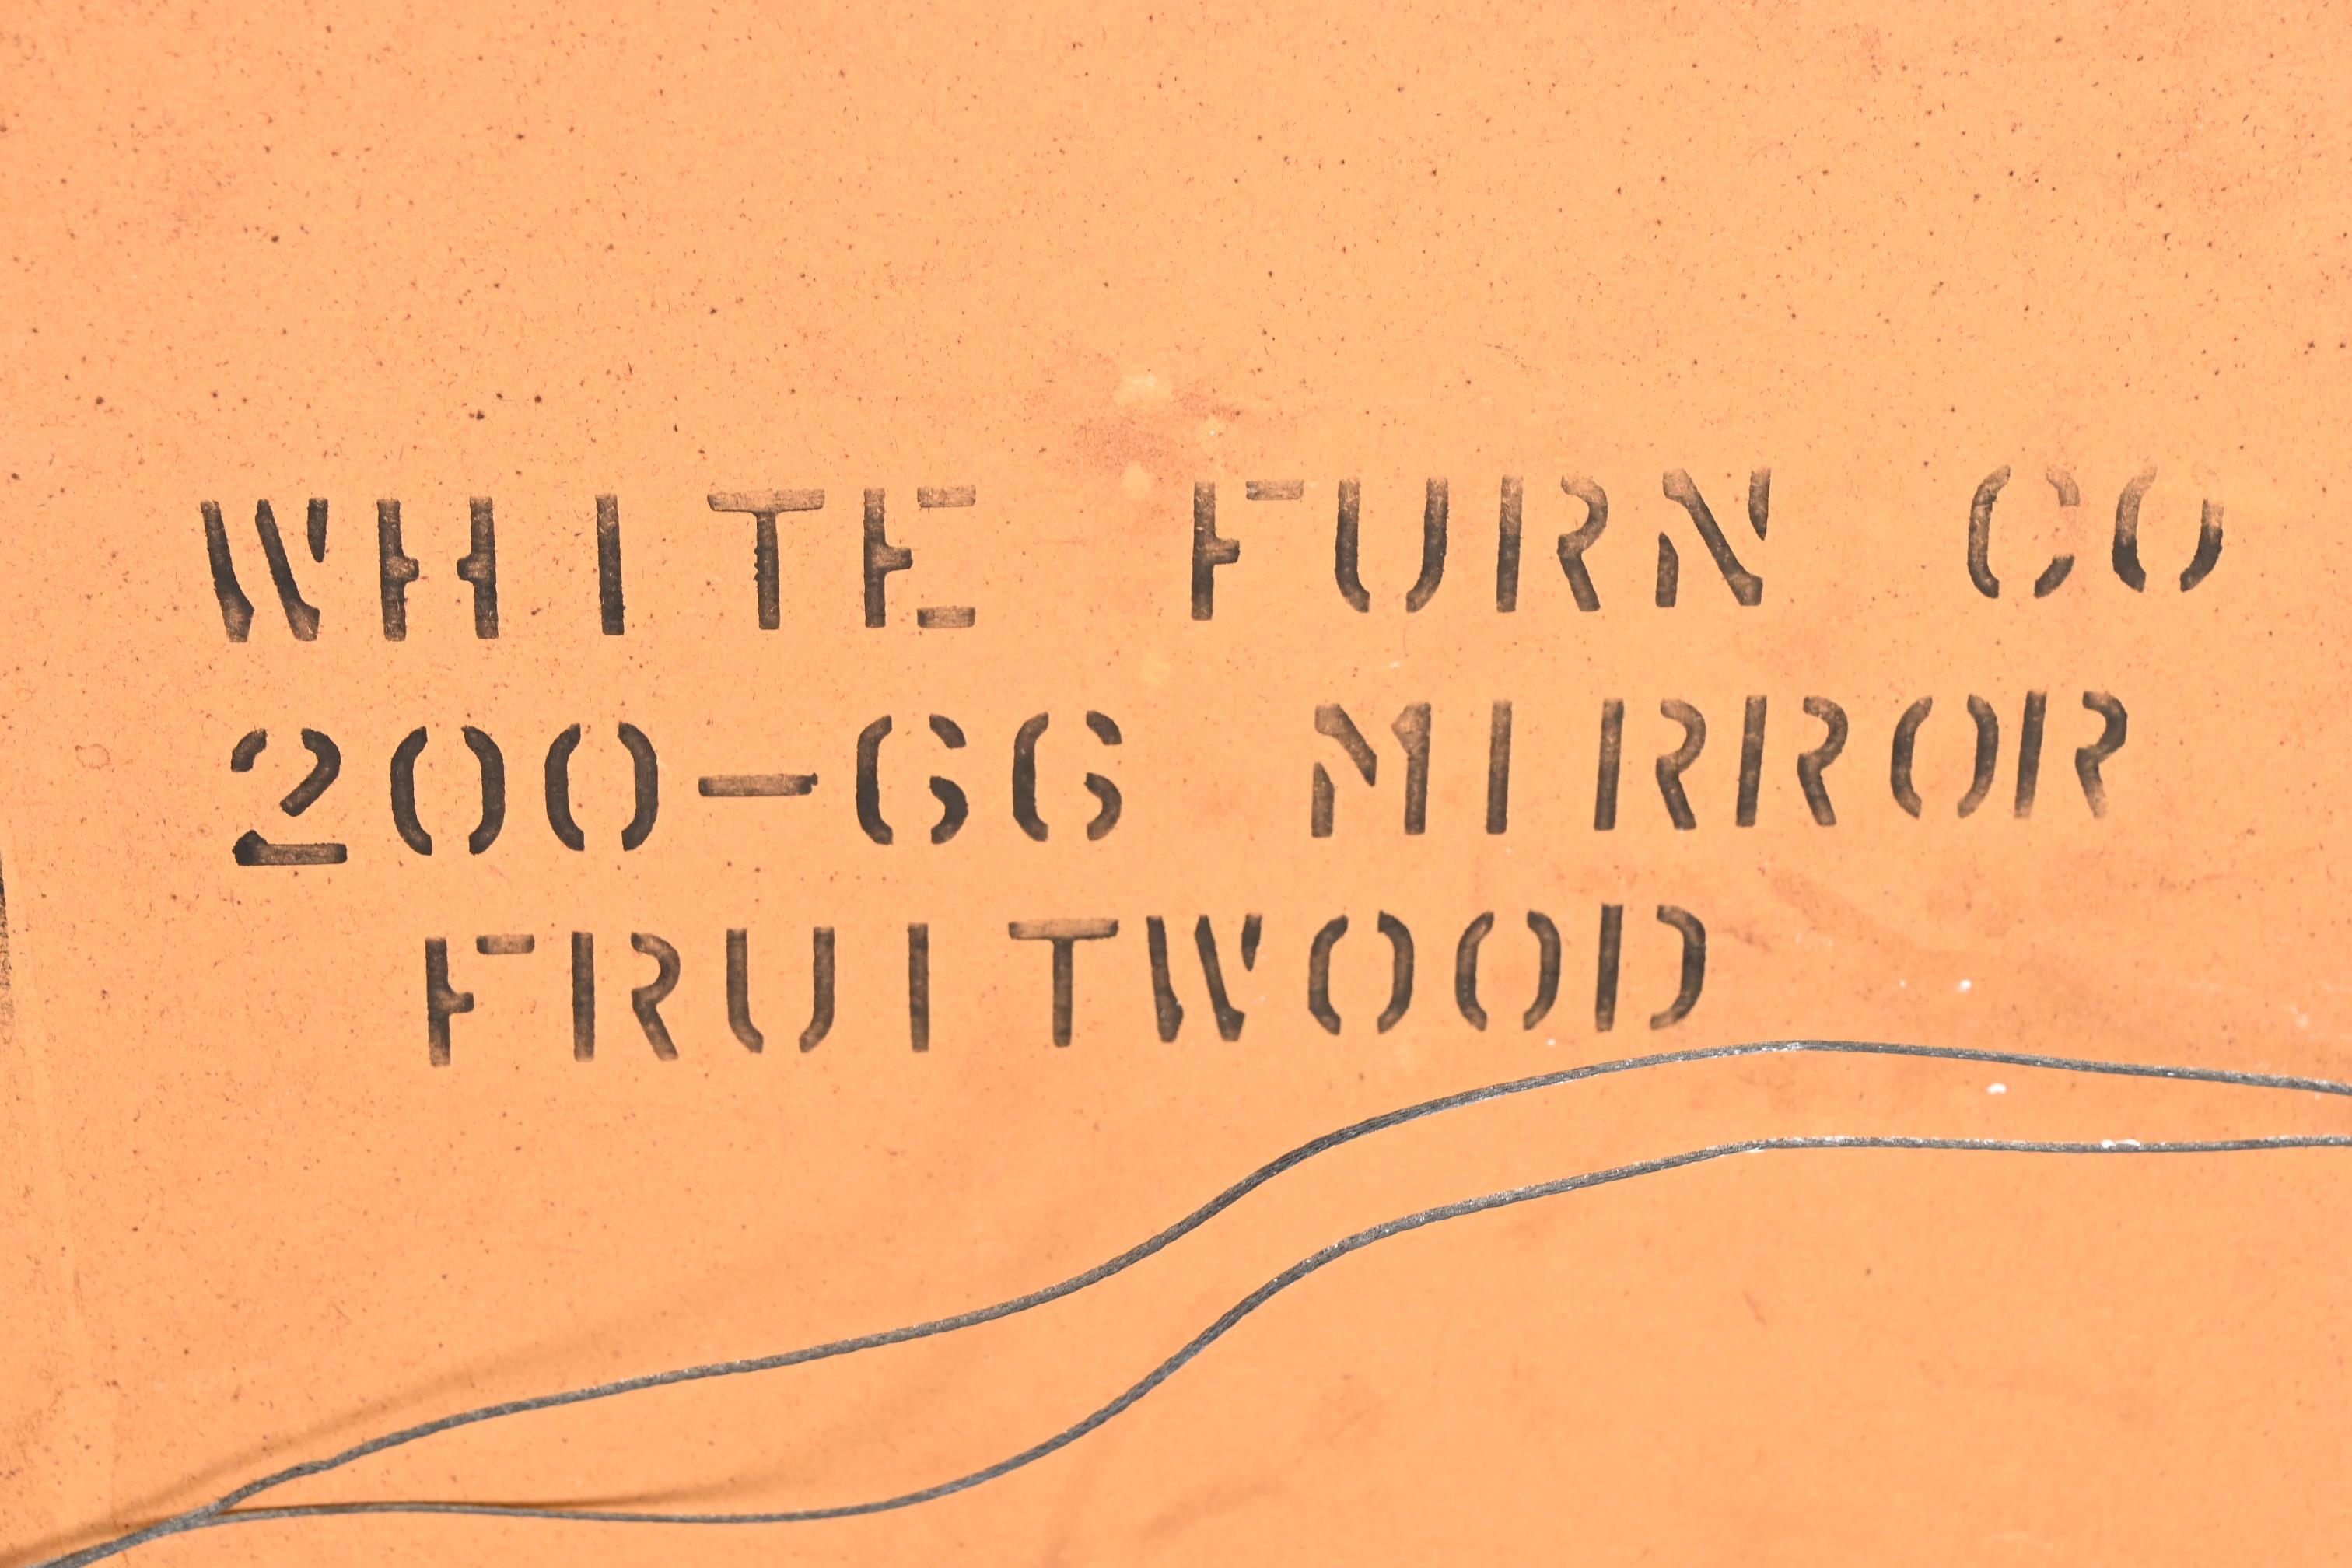 WHITE FURN CO
200-66 MIRROR
FRUITWOOD